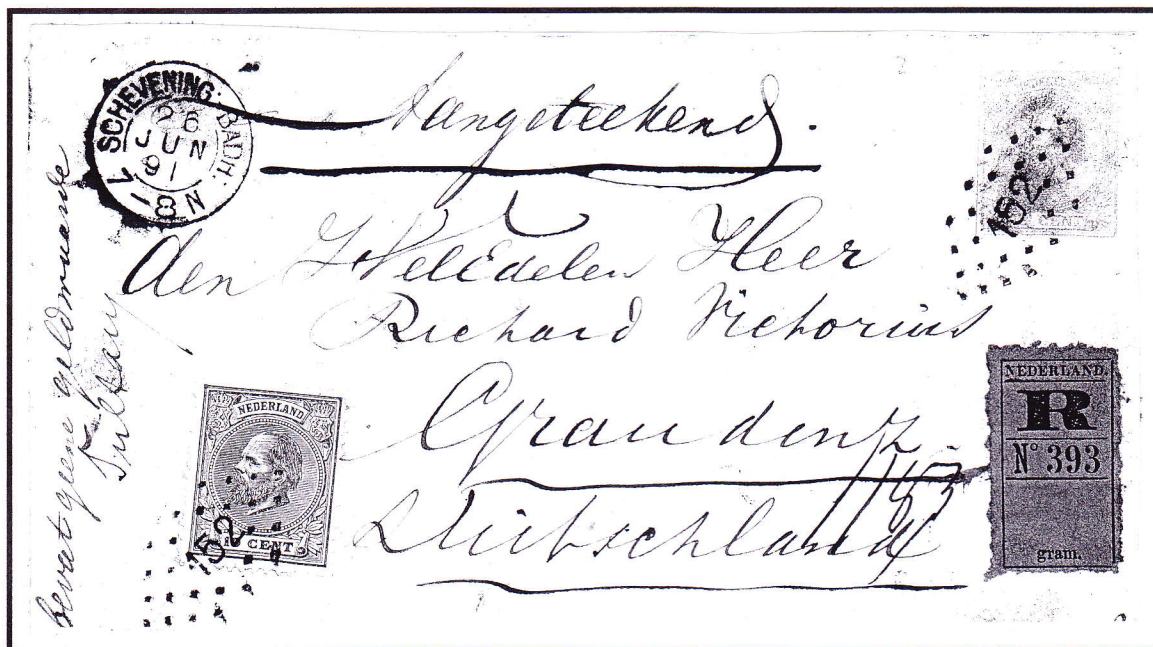 SCHEVENING: BADH:
26
JUN
91
7-8N
Aangeteekend.
den WelEdelen Heer
Richard Victorius
Graudenz.
Duitschland
bevat geene geldwaarde
152
CENT
NEDERLAND.
R
N° 393
gram.
NEDERLAND
CENT
152